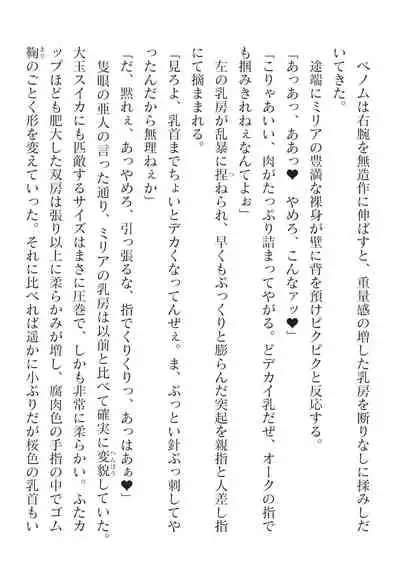 ベノムは右腕を無造作に伸ばすと、重量感の増した乳房を断りなしに揉みしだ
いてきた。
途端にミリアの豊満な裸身が壁に背を預けピクピクと反応する。
「あっあっ、ああっ♥　やめろ、こんなァッ♥」
「こりゃあいい、肉がたっぷり詰まってやがる。どデカイ乳だぜ、オークの指で
も掴みきれねえなんてよぉ」
左の乳房が乱暴に捏ねられ、早くもぷっくりと膨らんだ突起を親指と人差し指
にて摘まれる。
「見ろよ、乳首までちょいとデカくなってんぜぇ。ま、ぶっとい針ぶっ刺してや
ったんだから無理ねぇか」
「だ、黙れぇ、あっやめろ、引っ張るな、指でくりくりっ、あっはあぁ♥」
隻眼の亜人の言った通り、ミリアの乳房は以前と比べて確実に変貌していた。
大玉スイカにも匹敵するサイズはまさに圧巻で、しかも非常に柔らかい。ふたカ
ップほども肥大した双房は張り以上に柔らかみが増し、腐肉色の手指の中でゴム
鞠のごとく形を変えていった。それに比べれば遥かに小ぶりだが桜色の乳首もい